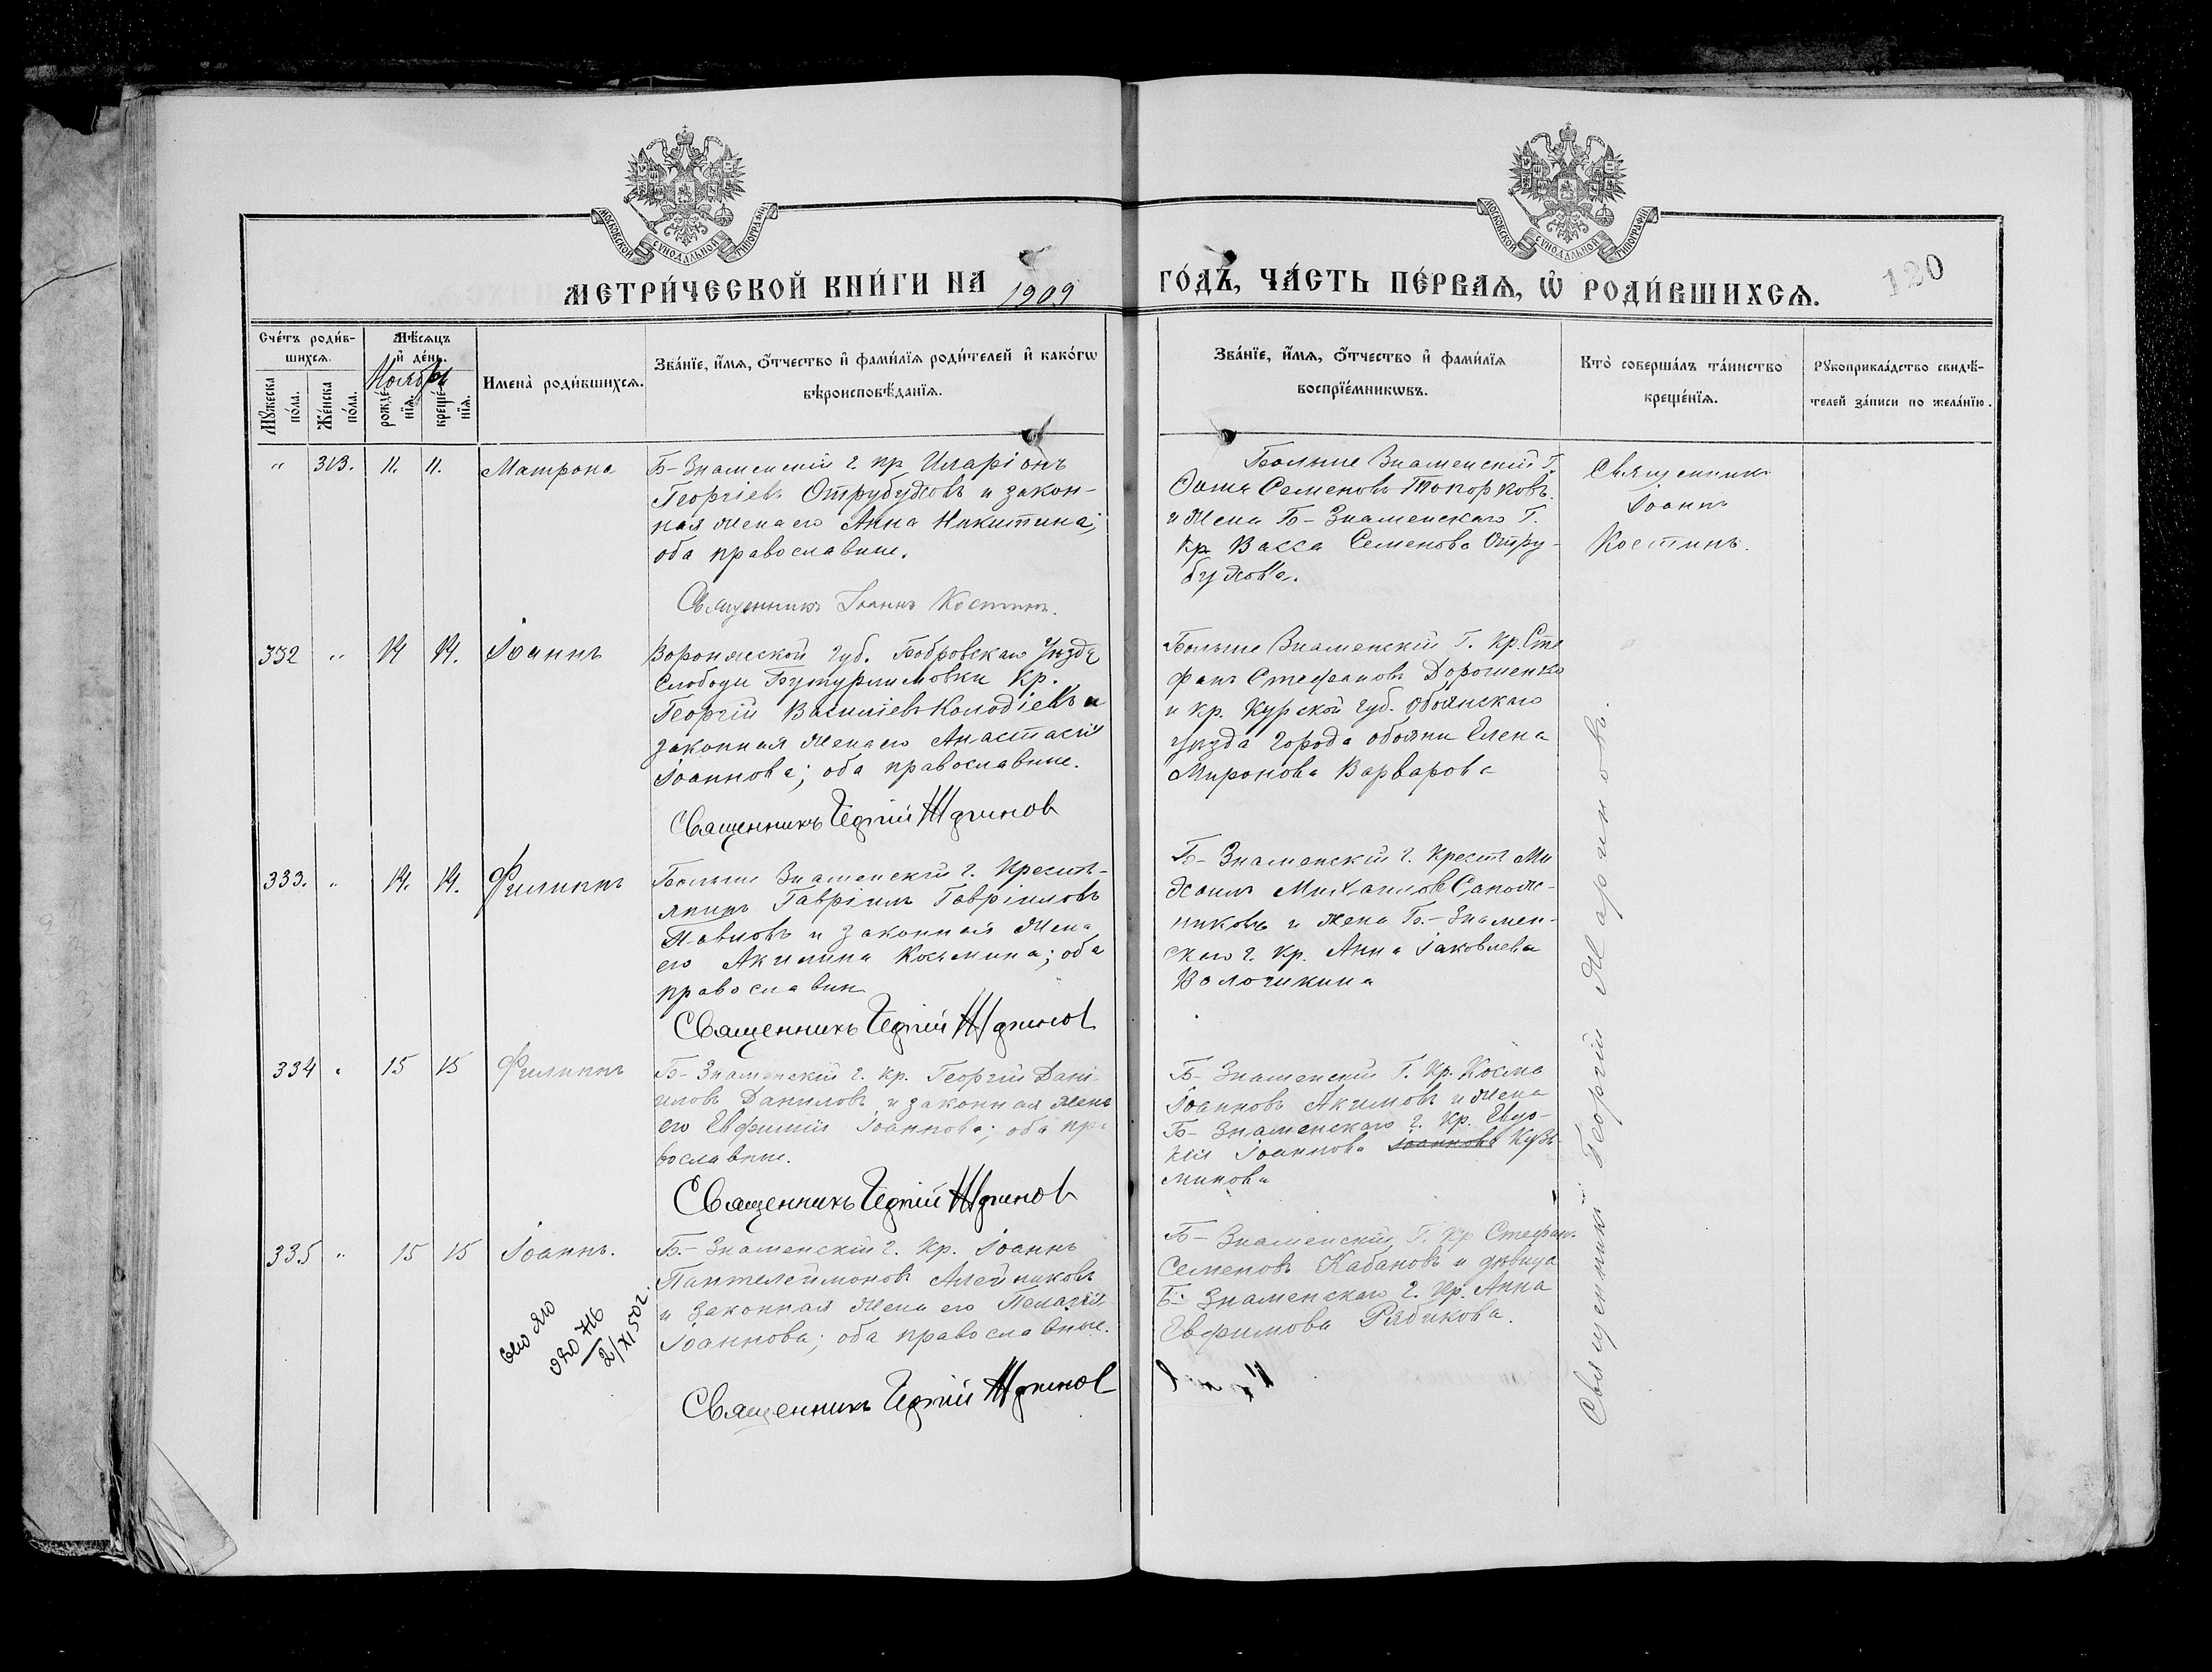 МОСКОВСКОЙ СѴНОДАЛЬНОЙ ТИПОГРАФІИ
МОСКОВСКОЙ СѴНОДАЛЬНОЙ ТИПОГРАФІИ
МЕТРИ́ЧЕСКОЙ КНИ́ГИ НА 1909
ГО́ДЪ, ЧА́СТЬ ПЕ́РВАѦ, Ѡ҆ РОДИ́ВШИХСѦ.
120
Сче́тъ роди́в-
шихсѧ.
Мꙋ́жеска
по́ла.
Же́нска
по́ла.
Мѣ́сѧцъ
и҆ де́нь.
Ноябрь
рожде́-
нїѧ.
креще́-
нїѧ.
Имена̀ роди́вшихсѧ.
Зва́нїе, и҆́мѧ, ѻ҆́тчество и҆ фами́лїѧ роди́телей и҆ како́гѡ
вѣроисповѣ́данїѧ.
Зва́нїе, и҆́мѧ, ѻ҆́тчество и҆ фами́лїѧ
воспрїе́мникѡвъ.
Кто̀ соверша́лъ та́инство
креще́нїѧ.
Рꙋкоприкла́дство свидѣ́-
телей за́писи по жела́нїю.
" 313. 11. 11. Матрона
Б-Знаменскій г. кр Иларіонъ
Георгіевъ Отрубуховъ и закон-
ная жена его Анна Никитина;
оба православные.
Священникъ Іоаннъ Костинъ.
Больше Знаменскій Г.
Семеновъ Токорковъ
и жена Б-Знаменскаго Г.
кр Васса Семенова Отру-
бухова.
Священникъ
Іоаннъ
Костинъ.
332 " 14 14. Іоаннъ
Воронежской губ. Бобровскаго уѣзда
слободы Бутурлиновки кр.
Георгій Василіевъ Колодіевъ и
законная жена его Анастасія
Іоаннова; оба православные.
Священникъ Георгій Маринов
Больше Знаменскій Г. кр. Сте
фанъ Стефановъ Дорошенко
и кр. Курской губ. Обоянскаго
уѣзда города Обояни Елена
Миронова Варварова
333. " 14. 14. Филиппъ
Больше Знаменскій г. Кресть-
янинъ Гавріилъ Гавріиловъ
Павловъ и законная жена
его Акилина Косьмина; оба
православн
Священникъ Георгій Маринов
Б-Знаменскій г. Крест Ми
хаилъ Михаиловъ Сапож-
никовъ и жена Б.-Знамен-
скаго г. кр. Анна Іаковлева
Вологикина
334 " 15 15 Филиппъ
Б-Знаменскій г. кр. Георгій Дані-
иловъ Даниловъ и законная жена
его Евфимія Іоаннова; оба пра
вославные.
Священникъ Георгій Маринов
Б-Знаменскій Г. Кр. Косма
Іоанновъ Акимовъ и жена
Б-Знаменскаго г. кр. Евдо-
кія Іоаннова Іоаннова Кузь-
минова
335 " 15 15 Іоаннъ.
Б.-Знаменскій г. кр. Іоаннъ
Пантелеимоновъ Алейниковъ
и законная жена его Пелагія
Іоаннова; оба православные.
Священникъ Георгій Маринов
Б-Знаменскій Г. кр Стефан.
Семеновъ Кабановъ и дѣвица
Б-Знаменскаго г. кр. Анна
Евфимова Рябикова.
Священникъ Георгій Мариновъ.